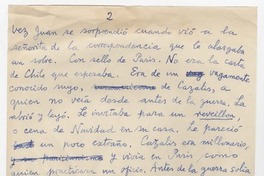 2
vez Juan se sorprendió cuando vió a la
señorita de la correspondencia que le alargaba
un sobre. Con sello de París. No era la carta
de Chile que esperaba. Era de un vagamente
conocido suyo, de Cazalis, a
quien no veía desde antes de la guerra. La
abrió y leyó. Le invitaba para un reveillon,
o cena de Navidad en su casa. Le pareció
un poco extraño. Cazalis era millonario,
y vivía en París como
quien practicara un oficio. Antes de la guerra solía